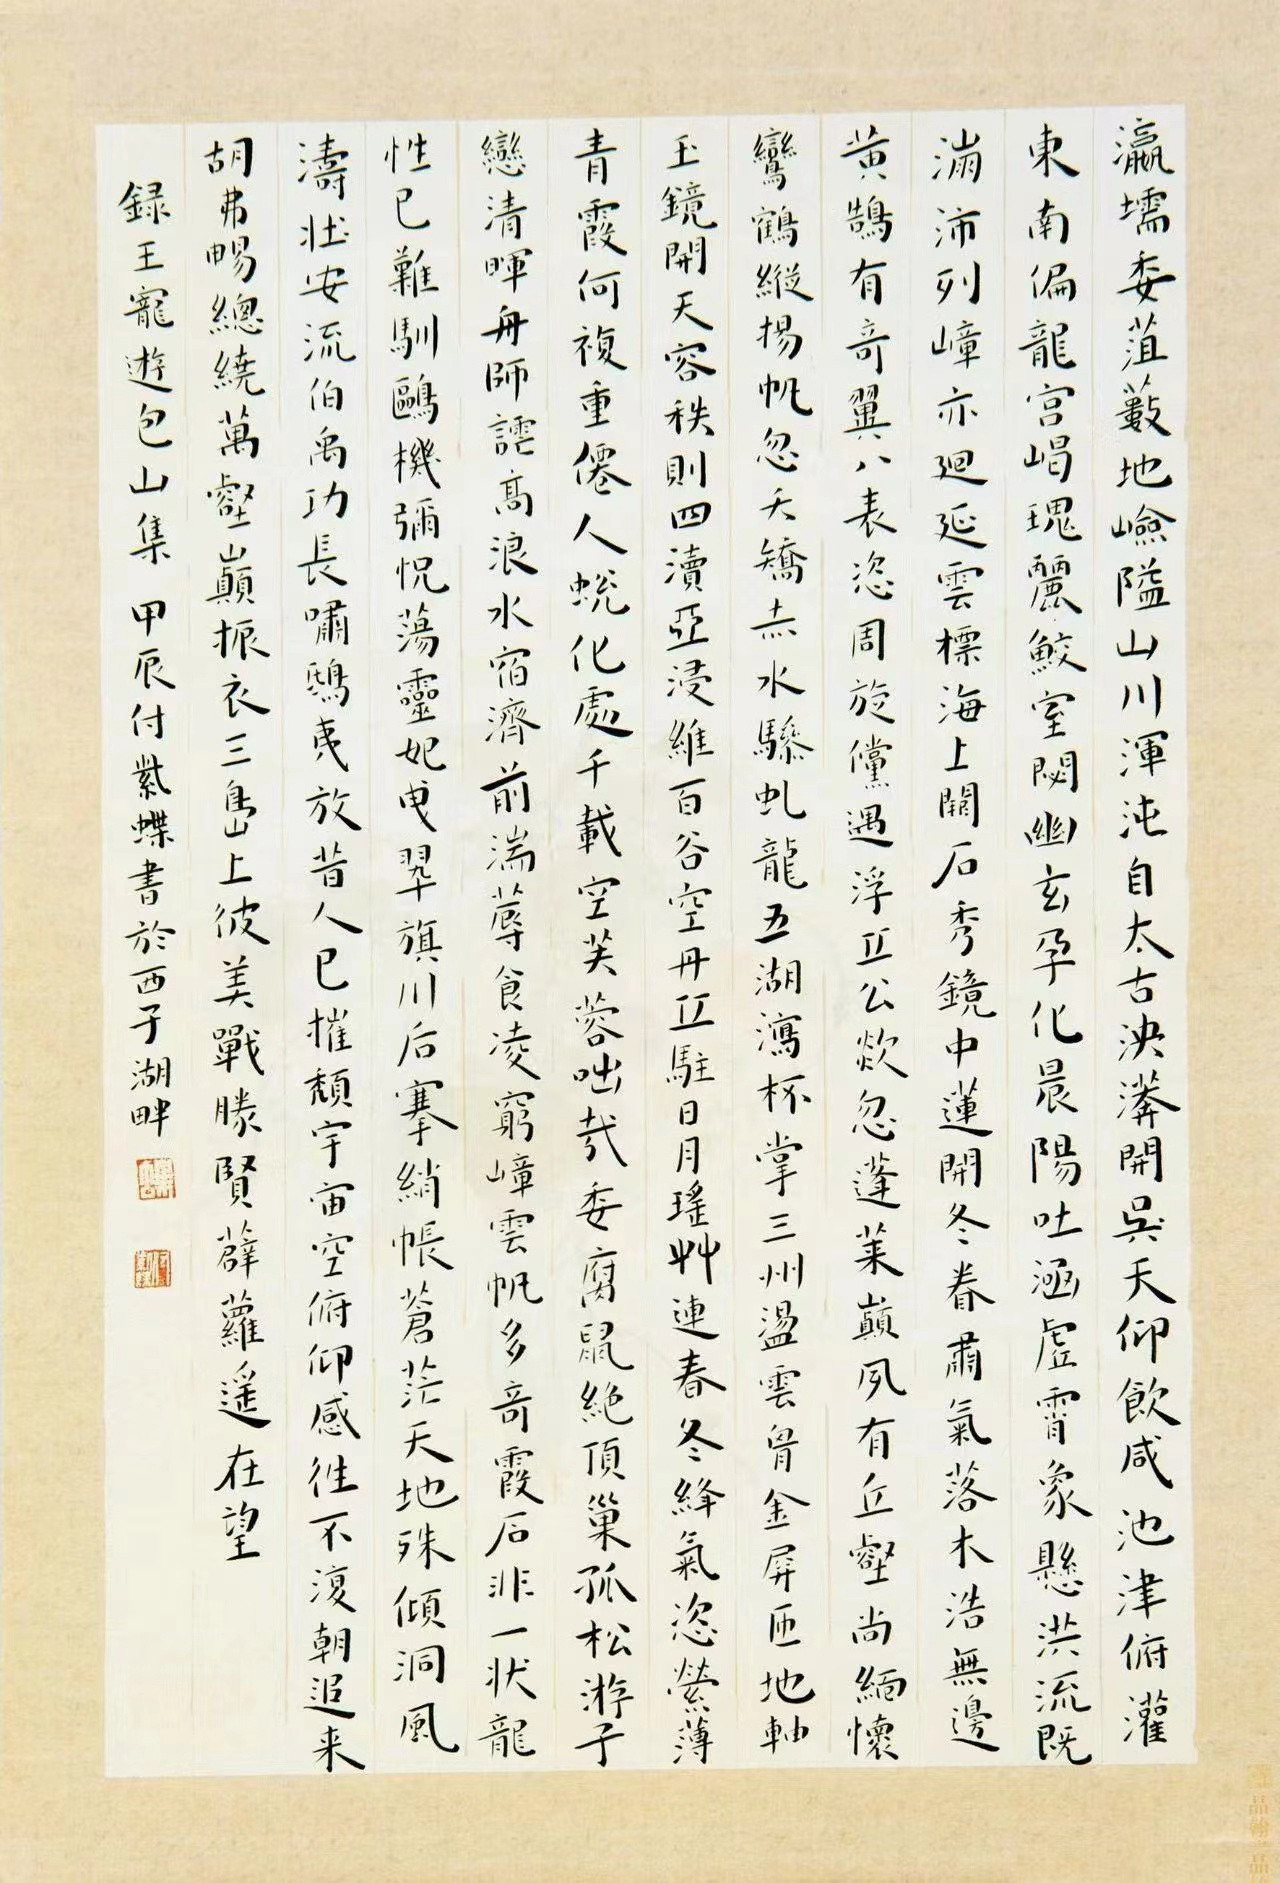 瀛壖委菹藪地嶮隘山川渾沌自太古泱漭開吳天仰飲咸池津俯灌
東南偏龍宮崵瑰麗鮫室閟幽玄孕化晨陽吐涵虛霄象懸洪流既
滿沛列嶂亦迴延雲標海上闢石秀鏡中蓮開冬春肅氣落木浩無邊
黄鵠有奇翼八表恣周旋儻遇浮丘公欻忽蓬萊巔夙有丘壑尚緬懷
鸞鶴縱揚帆忽夭矯赤水驂虬龍五湖瀉杯掌三州盪雲胷金屏匝地軸
玉鏡開天容秩則四瀆亞浸維百谷空丹丘駐日月瑤艸連春冬絳氣恣縈薄
青霞何複重僊人蛻化處千載空芙蓉咄哉委腐鼠絶頂巢孤松游子
戀清暉舟師謔高浪水宿濟前湍蓐食凌窮嶂雲帆多奇霞石非一状龍
性已難馴鷗機彌怳蕩靈妃曳翠旗川后搴綃帳蒼茫天地殊傾洞風
濤壯安流伯禹功長嘯鴟夷放昔人已摧頹宇宙空俯仰感往不復朝追来
胡弗暢總繞萬壑巔振衣三島上彼美戰勝賢薜蘿遥在望
録王寵遊包山集 甲辰付紫蝶書於西子湖畔